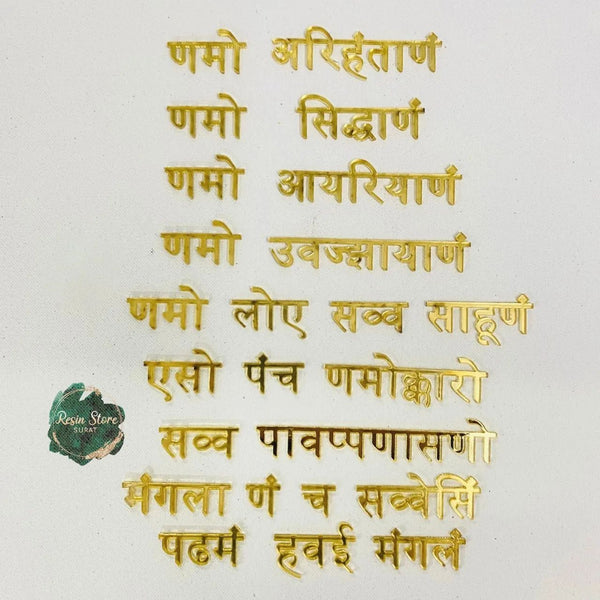 णमो अरिहंताणं
णमो सिद्धाणं
णमो आयरियाणं
णमो उवज्झायाणं
णमो लोए सव्व साहूणं
एसो पंच णमोक्कारो
Resin Store
SURAT
सव्व पावप्पणासणो
मंगला णं च सव्वेसिं
पढमं हवई मंगलं